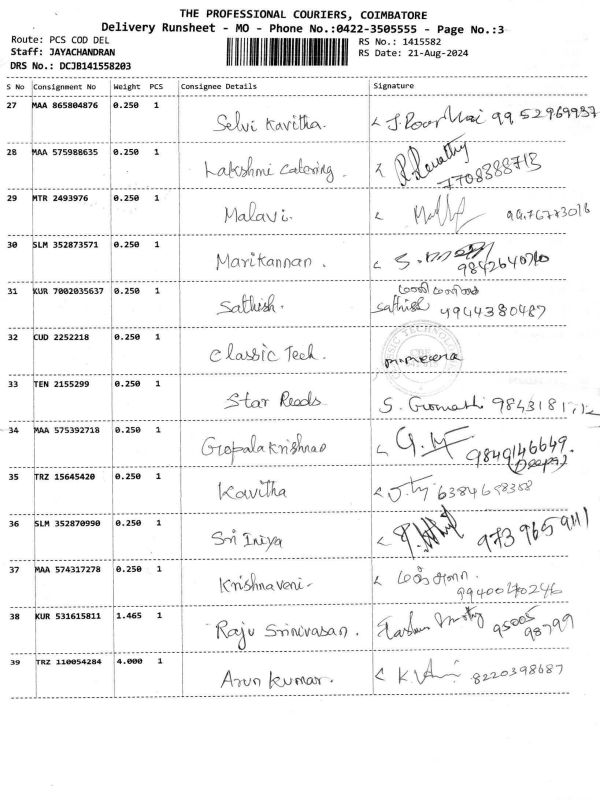 THE PROFESSIONAL COURIERS, COIMBATORE
Delivery Runsheet - MO - Phone No.:0422-3505555 - Page No.:3
Route: PCS COD DEL RS No.: 1415582
Staff: JAYACHANDRAN RS Date: 21-Aug-2024
DRS No.: DCJB141558203
S No Consignment No Weight PCS Consignee Details Signature
27 MAA 865804876 0.250 1 Selvi Kavitha. 9952969937
28 MAA 575988635 0.250 1 Lakshmi Catering. R. Revathy
7708388713
29 MTR 2493976 0.250 1 Malavi.
30 SLM 352873571 0.250 1 Marikannan.
31 KUR 7002035637 0.250 1 Sathish. Sathish 4944380487
32 CUD 2252218 0.250 1 Classic Tech.
33 TEN 2155299 0.250 1 Star Reads S. Gomathi
34 MAA 575392718 0.250 1 Gopalakrishnan
9849146649
(Deepa)
35 TRZ 15645420 0.250 1 Kavitha
36 SLM 352870990 0.250 1 Sri Iniya
37 MAA 574317278 0.250 1 Krishnaveni-
38 KUR 531615811 1.465 1 Raju Srinivasan. 95005
98799
39 TRZ 110054284 4.000 1 Arun Kumar. 8220398687